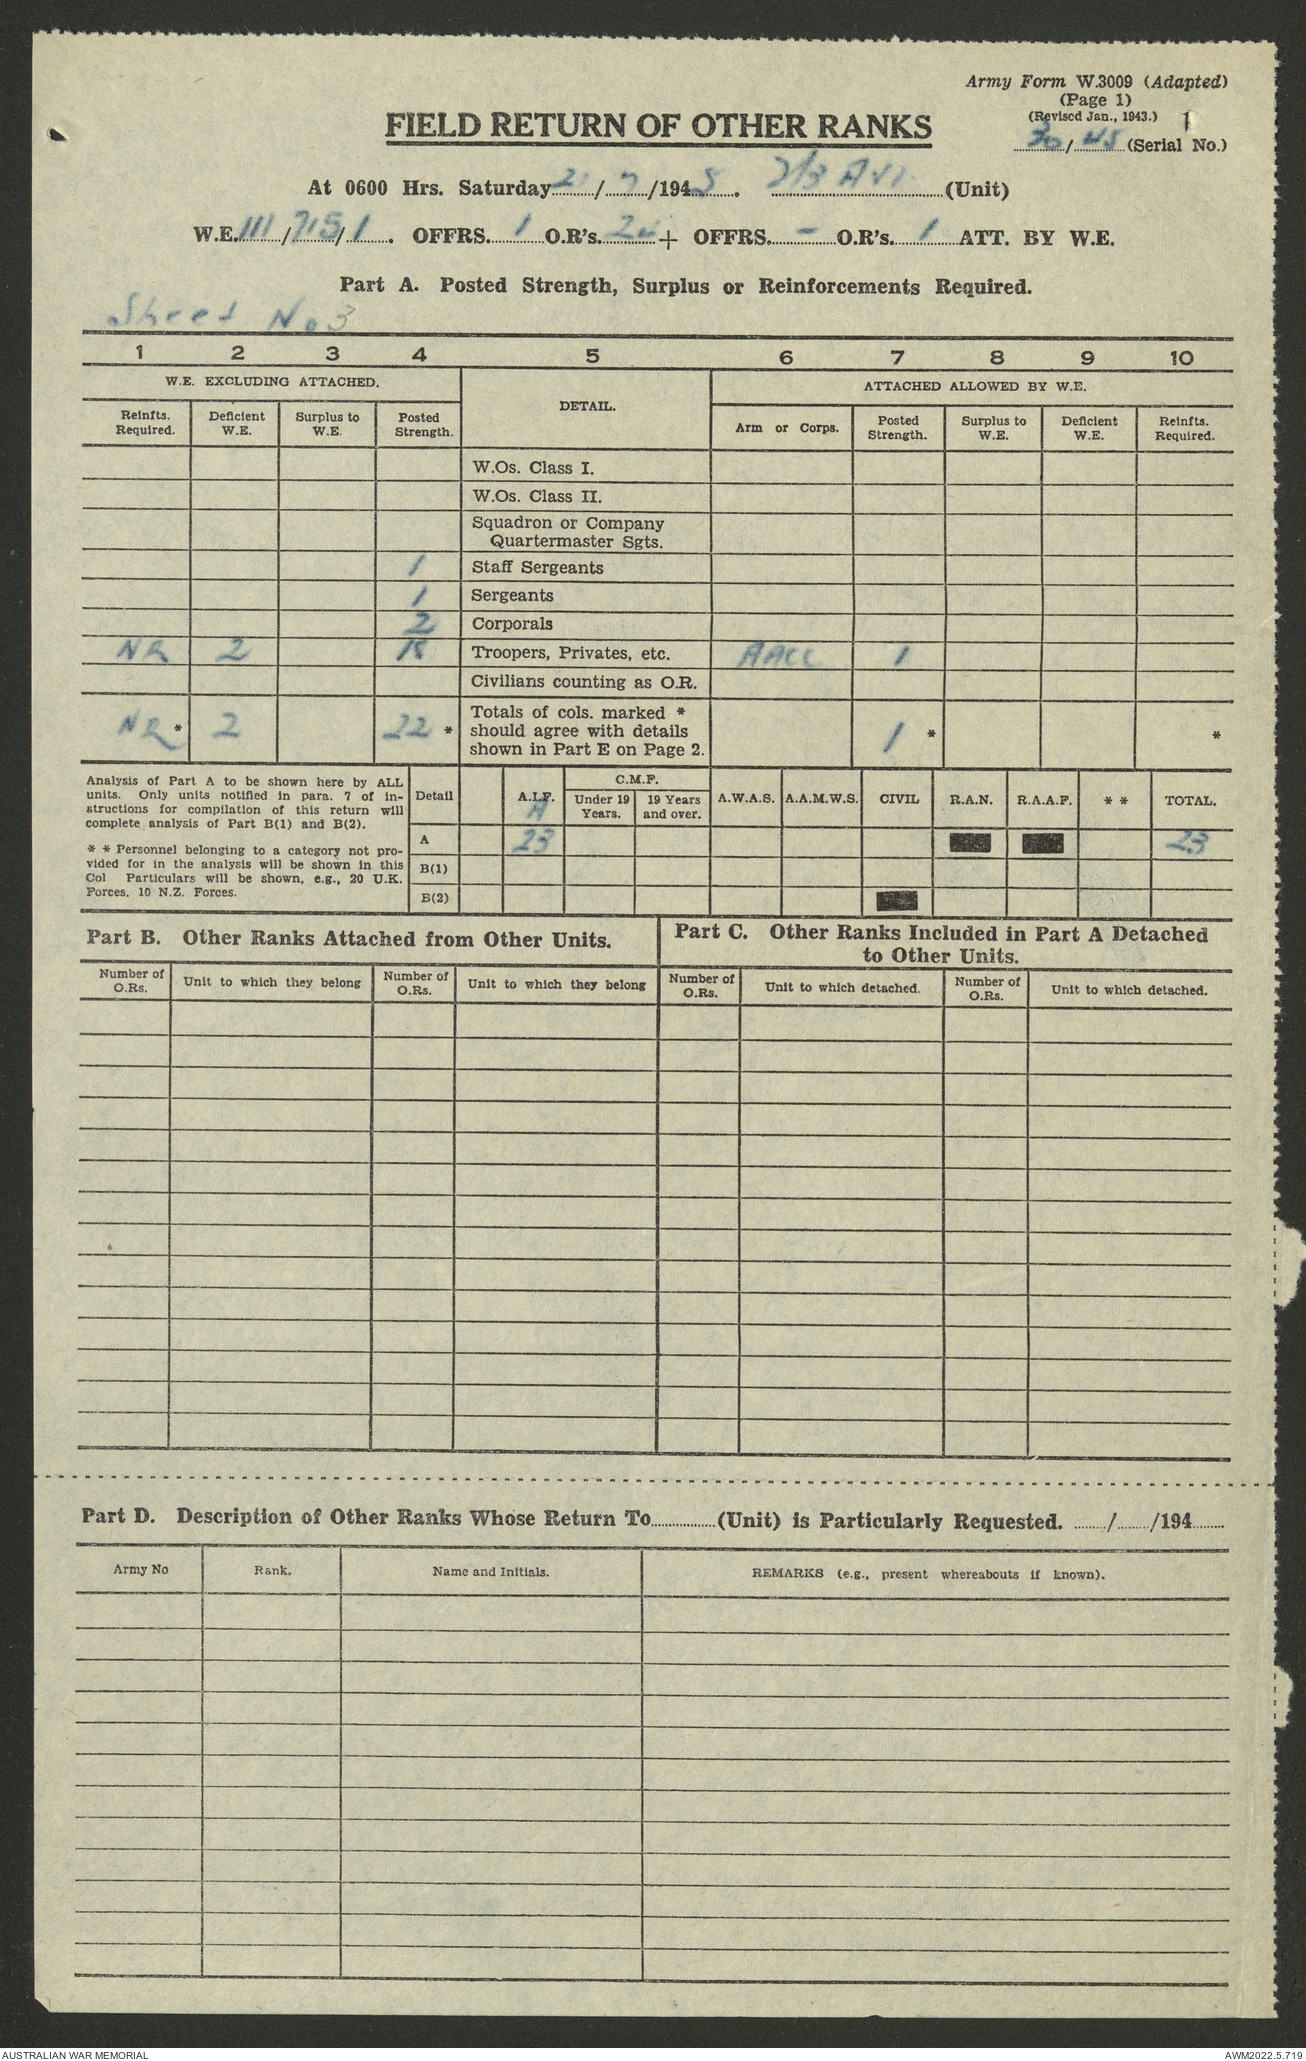 Army Form W.3009 (Adapted)
(Page 1)
(Revised Jan., 1943.)
1
30/45 (Serial No.)
FIELD RETURN OF OTHER RANKS
At 0600 Hrs. Saturday 21/7/1945. 2/3 (Unit)
W.E. 111/715/1. OFFRS. 1 O.R's. + OFFRS. - O.R's. 1 ATT. BY W.E.
Part A. Posted Strength, Surplus or Reinforcements Required.
Sheet No 3
1 2 3 4 5 6 7 8 9 10
W.E. EXCLUDING ATTACHED. DETAIL. ATTACHED ALLOWED BY W.E.
Reinfts. Required. Deficient W.E. Surplus to W.E. Posted Strength. Arm or Corps. Posted Strength. Surplus to W.E. Deficient W.E. Reinfts. Required.
W.Os. Class I.
W.Os. Class II.
Squadron or Company
Quartermaster Sgts.
1 Staff Sergeants
1 Sergeants
2 Corporals
NR 2 18 Troopers, Privates, etc. AACC 1
Civilians counting as O.R.
NR * 2 22 * Totals of cols. marked * 1 * *
should agree with details
shown in Part E on Page 2.
Analysis of Part A to be shown here by ALL
units. Only units notified in para. 7 of in-
structions for compilation of this return will
complete analysis of Part B(1) and B(2).
* * Personnel belonging to a category not pro-
vided for in the analysis will be shown in this
Col Particulars will be shown, e.g., 20 U.K.
Forces. 10 N.Z. Forces.
Detail A.I.F. C.M.F. A.W.A.S. A.A.M.W.S. CIVIL R.A.N. R.A.A.F. * * TOTAL.
A Under 19 Years. 19 Years and over.
A 23 23
B(1)
B(2)
Part B. Other Ranks Attached from Other Units.
Number of O.Rs. Unit to which they belong Number of O.Rs. Unit to which they belong
Part C. Other Ranks Included in Part A Detached
to Other Units.
Number of O.Rs. Unit to which detached. Number of O.Rs. Unit to which detached.
Part D. Description of Other Ranks Whose Return To............(Unit) is Particularly Requested. ....../....../194......
Army No Rank. Name and Initials. REMARKS (e.g., present whereabouts if known).
AUSTRALIAN WAR MEMORIAL
AWM2022.5.719